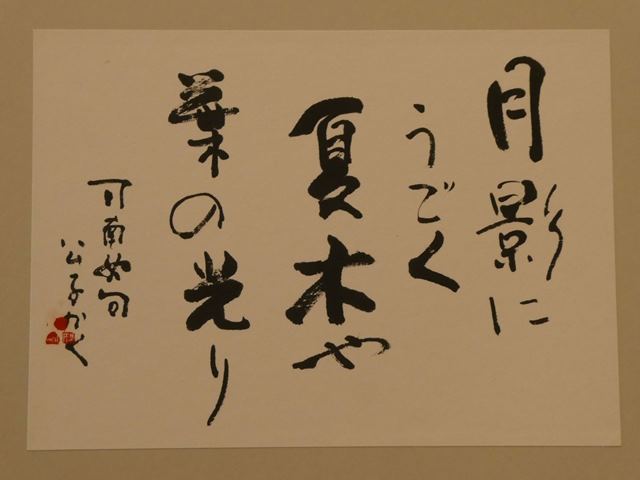 月影に
うごく
夏木や
葉の光り
可南女句
公子かく